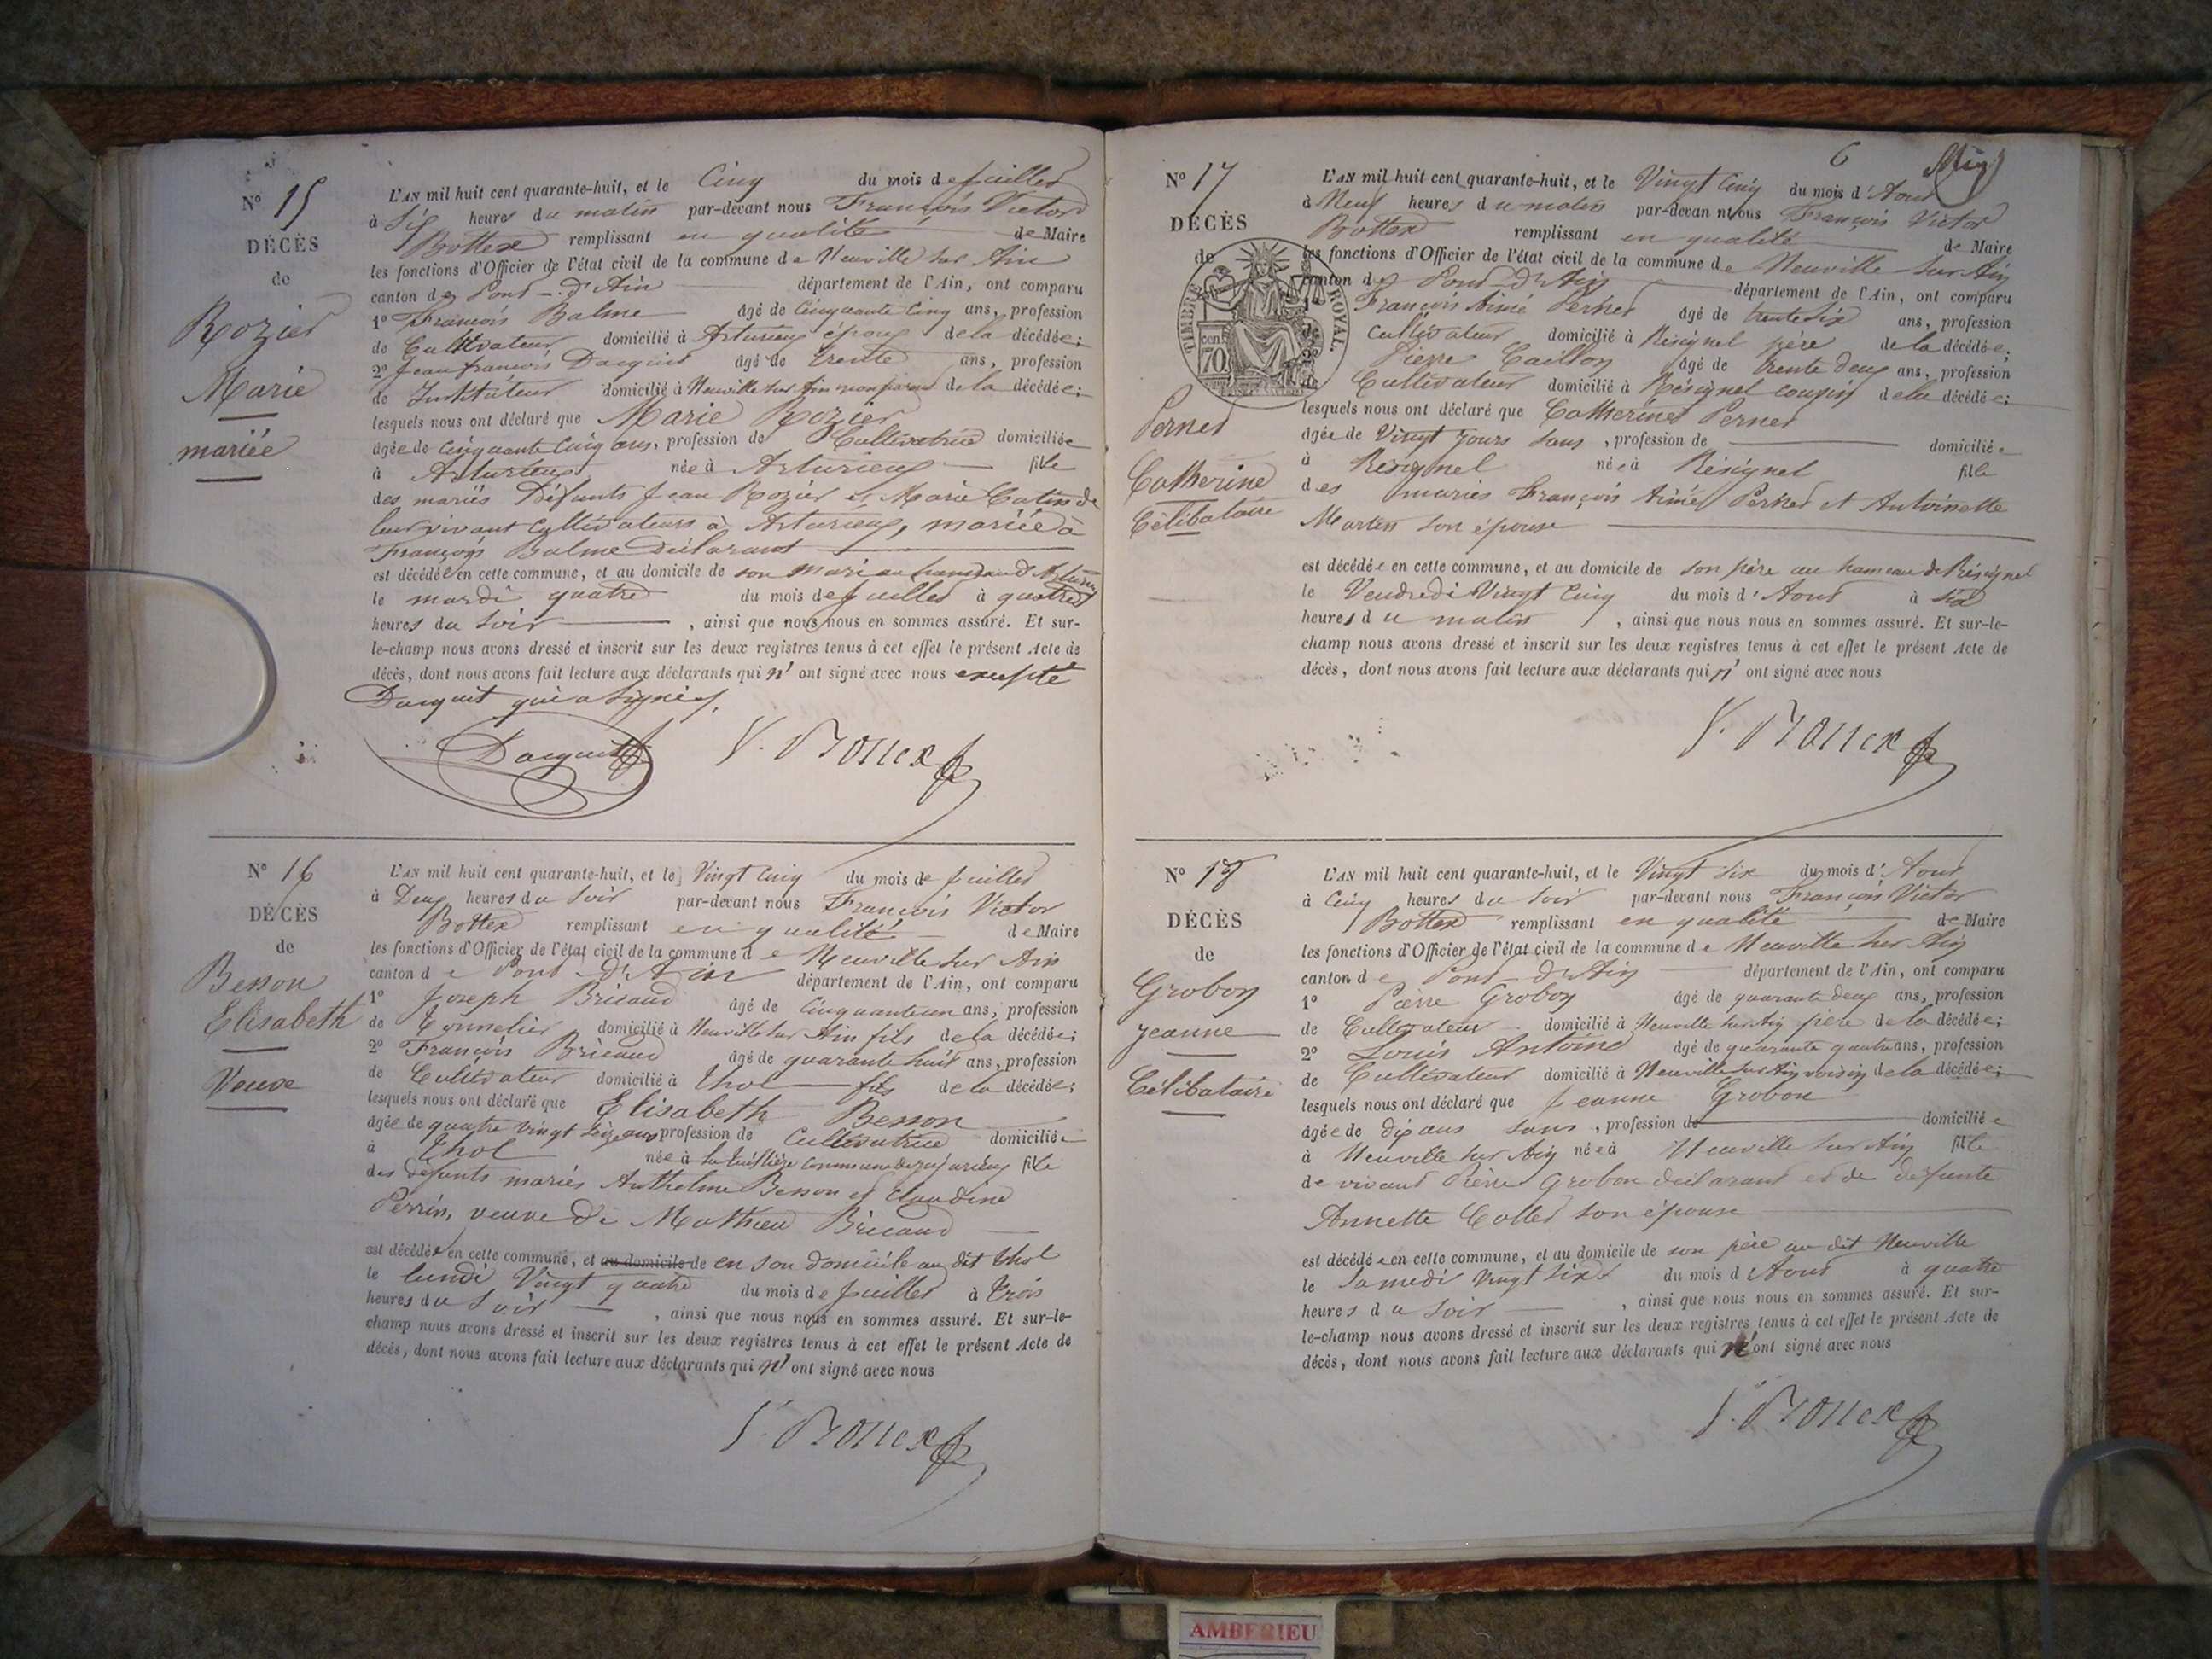 N° 15
DÉCÈS
de
Rozier
Marie
mariée
L'AN mil huit cent quarante-huit, et le Cinq du mois de juillet
à Six heures du matin par-devant nous François Victor
Bottex remplissant en qualité de Maire
les fonctions d'Officier de l'état civil de la commune de Neuville sur Ain
canton de Pont-d'Ain département de l'Ain, ont comparu
1° François Balme âgé de Cinquante Cinq ans, profession
de Cultivateur domicilié à époux de la décédée;
2° Jean françois Dacquit âgé de trente ans, profession
de Instituteur domicilié à Neuville sur Ain non parent de la décédée;
lesquels nous ont déclaré que Marie Rozier
âgée de cinquante cinq ans, profession de Cultivatrice domiciliée
à née à fille
des mariés Défunts Jean Rozier et Marie de
leur vivant cultivateurs à mariée à
François Balme déclarant
est décédée en cette commune, et au domicile de son mari au hameau d'
le mardi quatre du mois de juillet à quatre
heures du soir , ainsi que nous nous en sommes assuré. Et sur-
le-champ nous avons dressé et inscrit sur les deux registres tenus à cet effet le présent Acte de
décès, dont nous avons fait lecture aux déclarants qui n'ont signé avec nous excepté
Dacquit qui a signé.
Dacquit V. Bottex
N° 16
DÉCÈS
de
Besson
Elisabeth
Veuve
L'AN mil huit cent quarante-huit, et le Vingt Cinq du mois de juillet
à Deux heures du soir par-devant nous François Victor
Bottex remplissant en qualité de Maire
les fonctions d'Officier de l'état civil de la commune de Neuville sur Ain
canton de Pont-d'Ain département de l'Ain, ont comparu
1° Joseph Bricaud âgé de cinquante un ans, profession
de Tonnelier domicilié à Neuville sur Ain fils de la décédée;
2° François Bricaud âgé de quarante huit ans, profession
de Cultivateur domicilié à Thol fils de la décédée;
lesquels nous ont déclaré que Elisabeth Besson
âgée de quatre vingt seize ans profession de Cultivatrice domiciliée
à Thol née à commune de fille
des défunts mariés Anthelme Besson et Claudine
Perrin, veuve de Mathieu Bricaud
est décédée en cette commune, et au domicile de en son domicile au dit Thol
le lundi Vingt quatre du mois de juillet à trois
heures du soir , ainsi que nous nous en sommes assuré. Et sur-le-
champ nous avons dressé et inscrit sur les deux registres tenus à cet effet le présent Acte de
décès, dont nous avons fait lecture aux déclarants qui n'ont signé avec nous
V. Bottex
6
N° 17
DÉCÈS
de
TIMBRE ROYAL
70 cent
Pernet
Catherine
Célibataire
L'AN mil huit cent quarante-huit, et le Vingt Cinq du mois d'Aout
à Neuf heures du matin par-devant nous François Victor
Bottex remplissant en qualité de Maire
les fonctions d'Officier de l'état civil de la commune de Neuville-sur Ain
canton de Pont-d'Ain département de l'Ain, ont comparu
1° François Aimé Pernet âgé de trente six ans, profession
de cultivateur domicilié à Résignel père de la décédée;
2° Pierre Caillon âgé de trente deux ans, profession
de Cultivateur domicilié à Résignel cousin de la décédée;
lesquels nous ont déclaré que Catherine Pernet
âgée de Vingt jours sans , profession de domiciliée
à Résignel née à Résignel fille
des mariés François Aimé Pernet et Antoinette
Martin son épouse
est décédée en cette commune, et au domicile de son père au hameau de Résignel
le Vendredi Vingt Cinq du mois d'Aout à six
heures du matin , ainsi que nous nous en sommes assuré. Et sur-le-
champ nous avons dressé et inscrit sur les deux registres tenus à cet effet le présent Acte de
décès, dont nous avons fait lecture aux déclarants qui n'ont signé avec nous
V. Bottex
N° 18
DÉCÈS
de
Grobon
Jeanne
Célibataire
L'AN mil huit cent quarante-huit, et le Vingt six du mois d'Aout
à Cinq heures du soir par-devant nous François Victor
Bottex remplissant en qualité de Maire
les fonctions d'Officier de l'état civil de la commune de Neuville sur Ain
canton de Pont-d'Ain département de l'Ain, ont comparu
1° Pierre Grobon âgé de quarante deux ans, profession
de Cultivateur domicilié à Neuville sur Ain père de la décédée;
2° Louis Antoine âgé de quarante quatre ans, profession
de Cultivateur domicilié à Neuville sur Ain voisin de la décédée;
lesquels nous ont déclaré que Jeanne Grobon
âgée de dix ans sans , profession de domiciliée
à Neuville sur Ain née à Neuville sur Ain fille
de vivant Pierre Grobon déclarant et de défunte
Annette Collet son épouse
est décédée en cette commune, et au domicile de son père au dit Neuville
le samedi vingt six du mois d'Aout à quatre
heures du soir , ainsi que nous nous en sommes assuré. Et sur-
le-champ nous avons dressé et inscrit sur les deux registres tenus à cet effet le présent Acte de
décès, dont nous avons fait lecture aux déclarants qui n'ont signé avec nous
V. Bottex
AMBERIEU